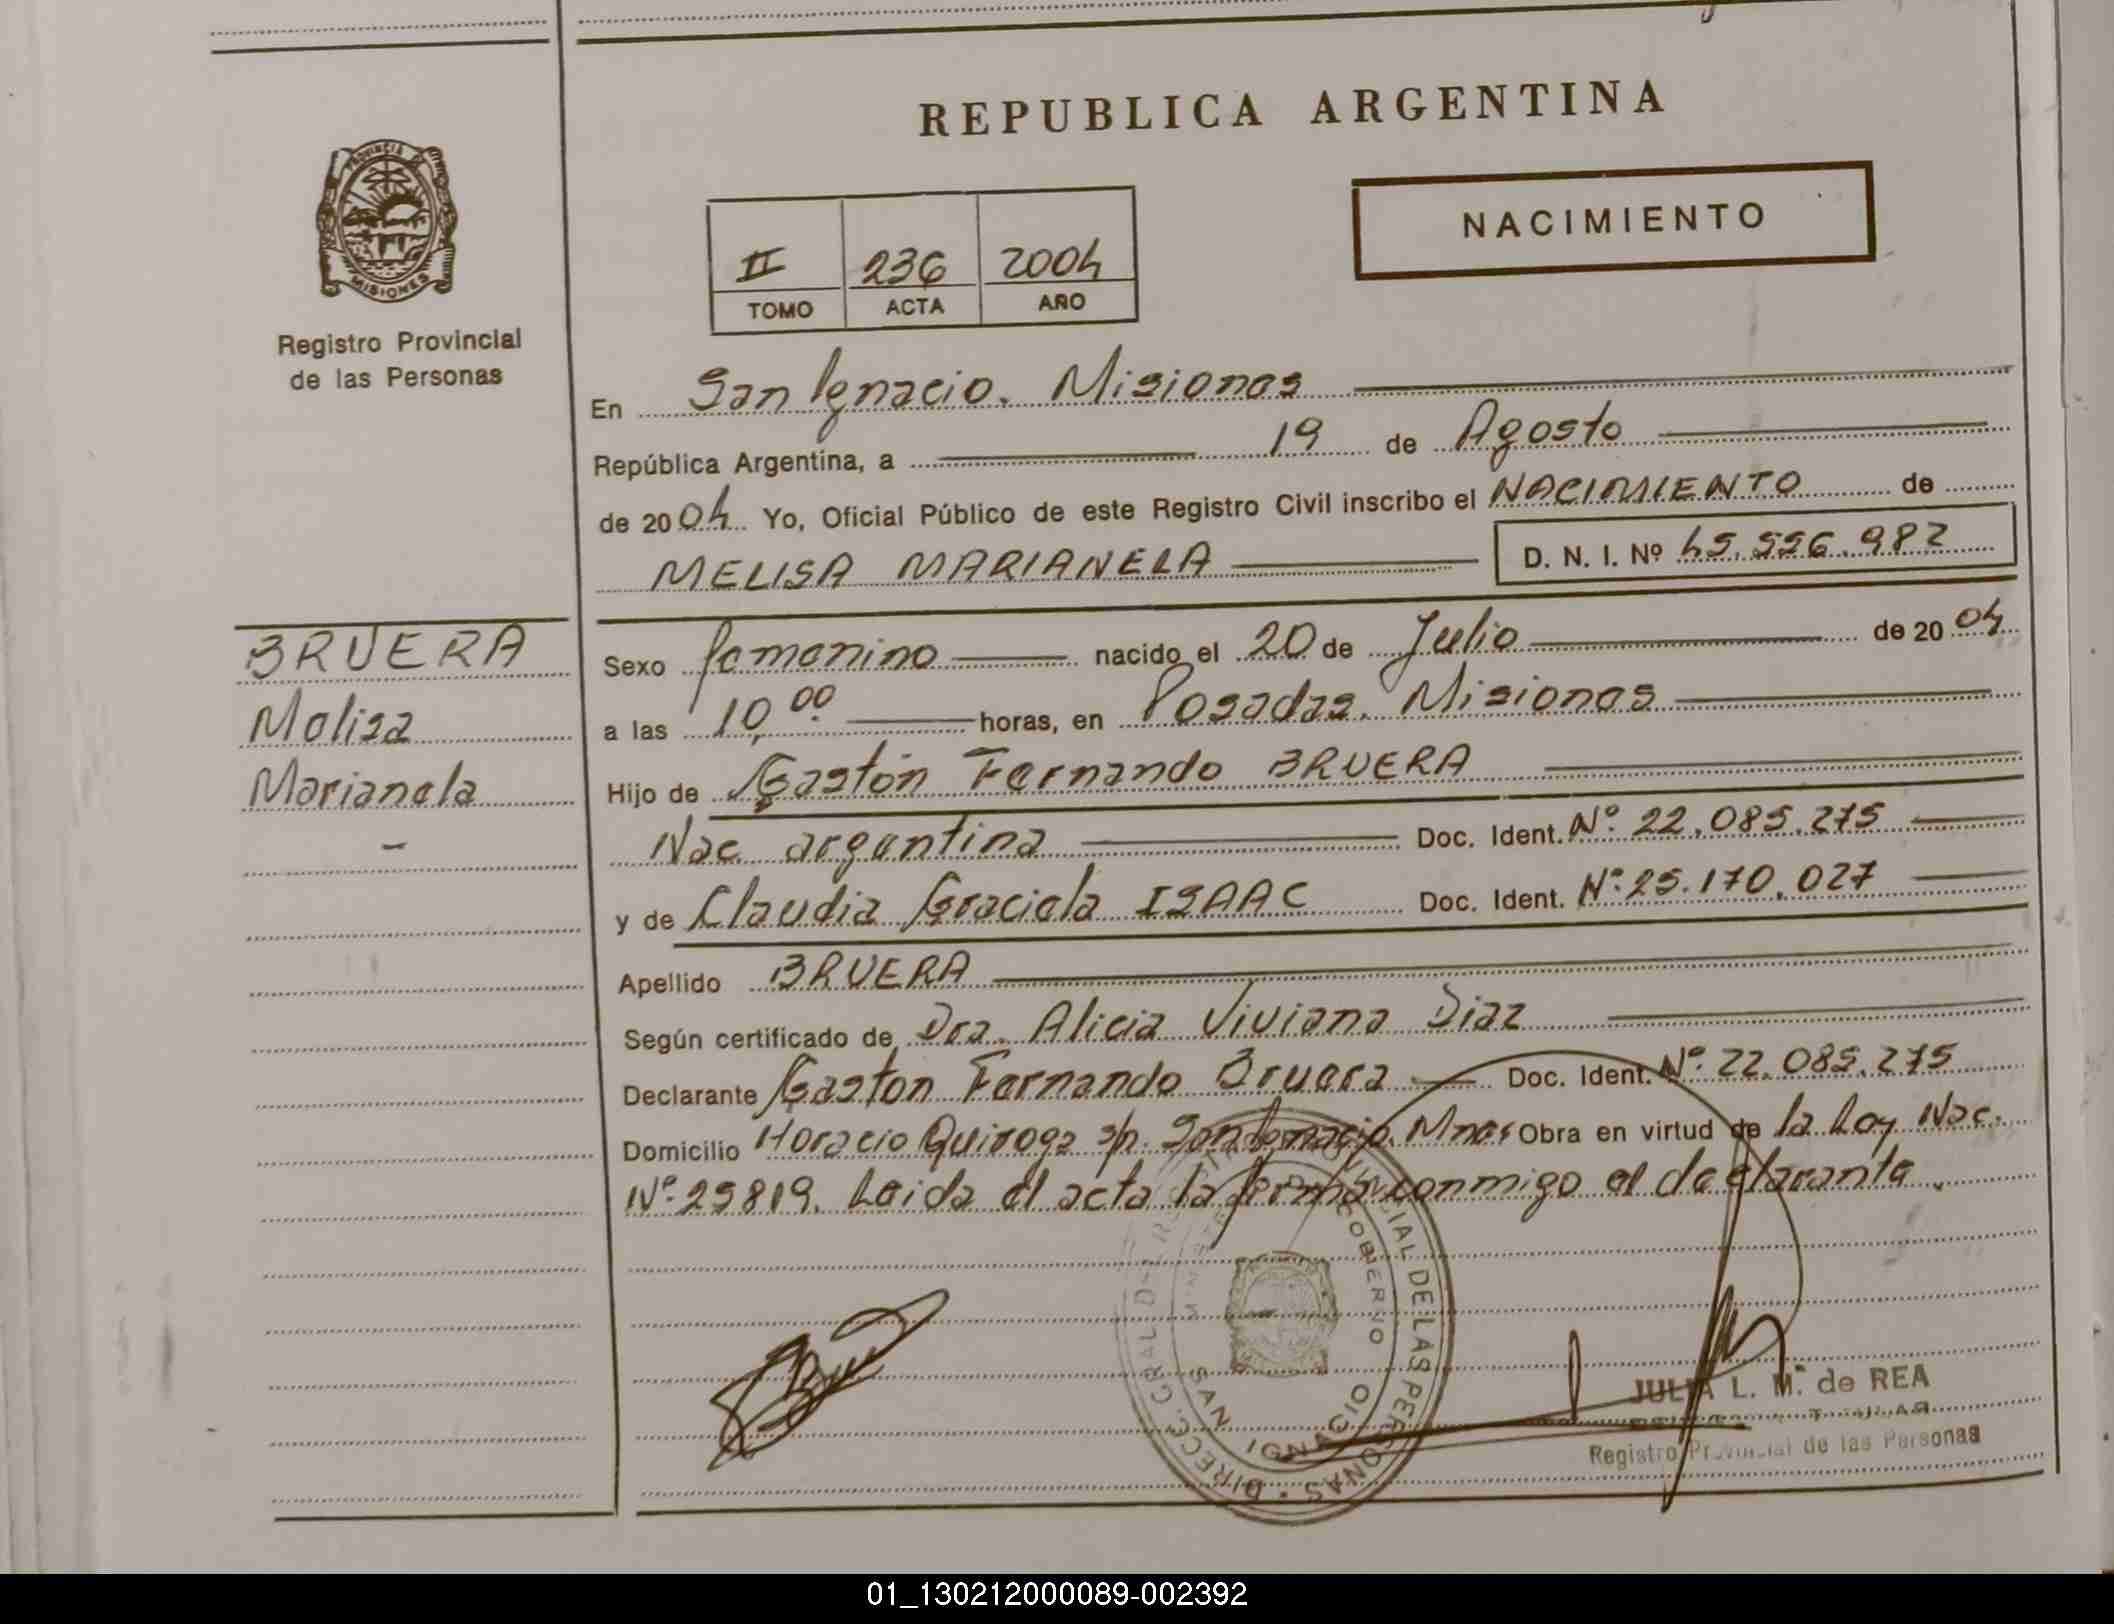 REPUBLICA ARGENTINA
PROVINCIA DE
MISIONES
Registro Provincial
de las Personas
NACIMIENTO
II 236 2004
TOMO ACTA AÑO
En San Ignacio. Misiones
República Argentina, a 19 de Agosto
de 2004 Yo, Oficial Público de este Registro Civil inscribo el NACIMIENTO de
MELISA MARIANELA D. N. I. Nº 45.556.982
BRUERA
Melisa
Marianela
-
Sexo femenino nacido el 20 de Julio de 2004
a las 10,00. horas, en Posadas. Misiones
Hijo de Gastón Fernando BRUERA
Nac argentina Doc. Ident. Nº. 22.085.275
y de Claudia Graciela ISAAC Doc. Ident. Nº. 25.170.027
Apellido BRUERA
Según certificado de Dra. Alicia Viviana Diaz
Declarante Gaston Fernando Bruera Doc. Ident. Nº. 22.085.275
Domicilio Horacio Quiroga s/n. San Ignacio. Mnes Obra en virtud de la Ley Nac.
Nº. 25819. Leida el acta la firma conmigo el declarante.
DIRECC. GRAL. DEL REGISTRO PROVINCIAL DE LAS PERSONAS
GOBIERNO
SAN IGNACIO
JULIA L. M. de REA
Registro Provincial de las Personas
01_130212000089-002392